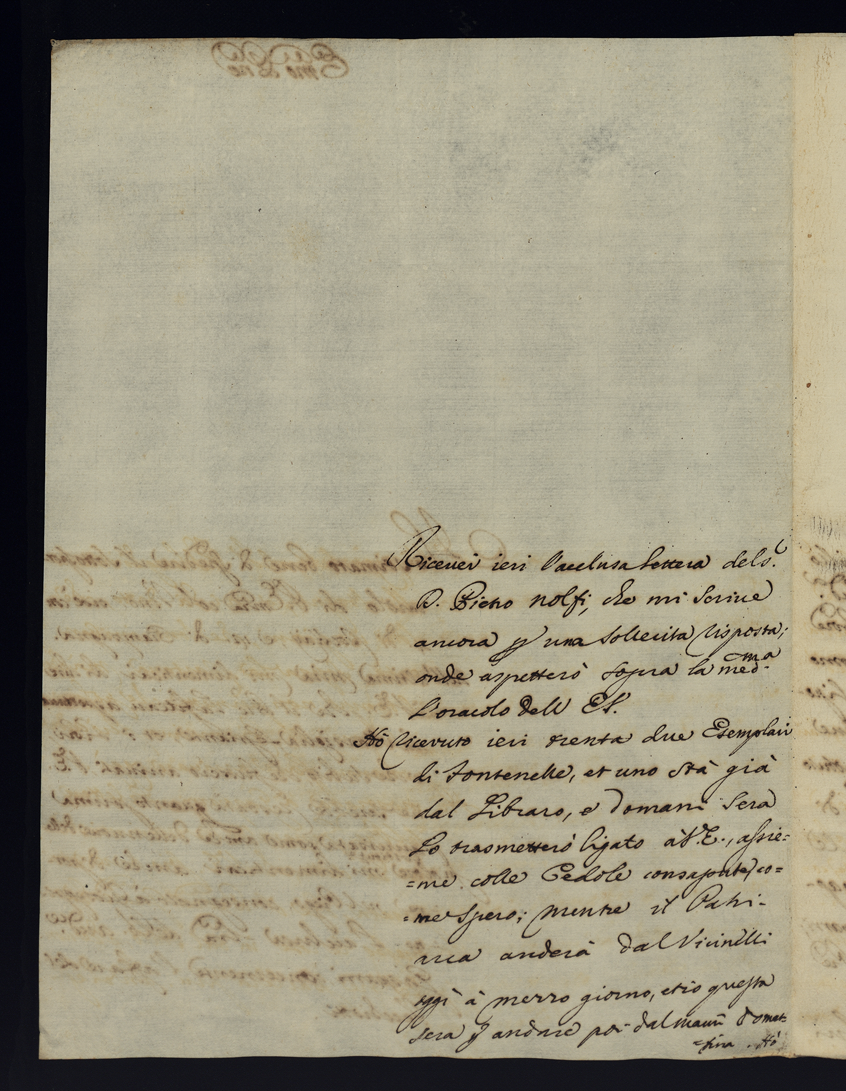 Ricevei ieri l'acclusa lettera del S.r
D. Pietro Nolfi, che mi scrive
ancora p una sollecita risposta;
onde aspetterò sopra la med.ma
L'oracolo dell' E.V.
Hò ricevuto ieri trenta due Esemplari
di Fontenelle, et uno stà già
dal Libraro, e domani sera
Lo trasmetterò ligato à V.E., assie=
=me colle Cedole consapute, co=
=me spero; mentre il Patri-
anderà dal Vicinelli
oggi à mezzo giorno, et io questa
sera p andare poi dal domat=
=tina. Hò